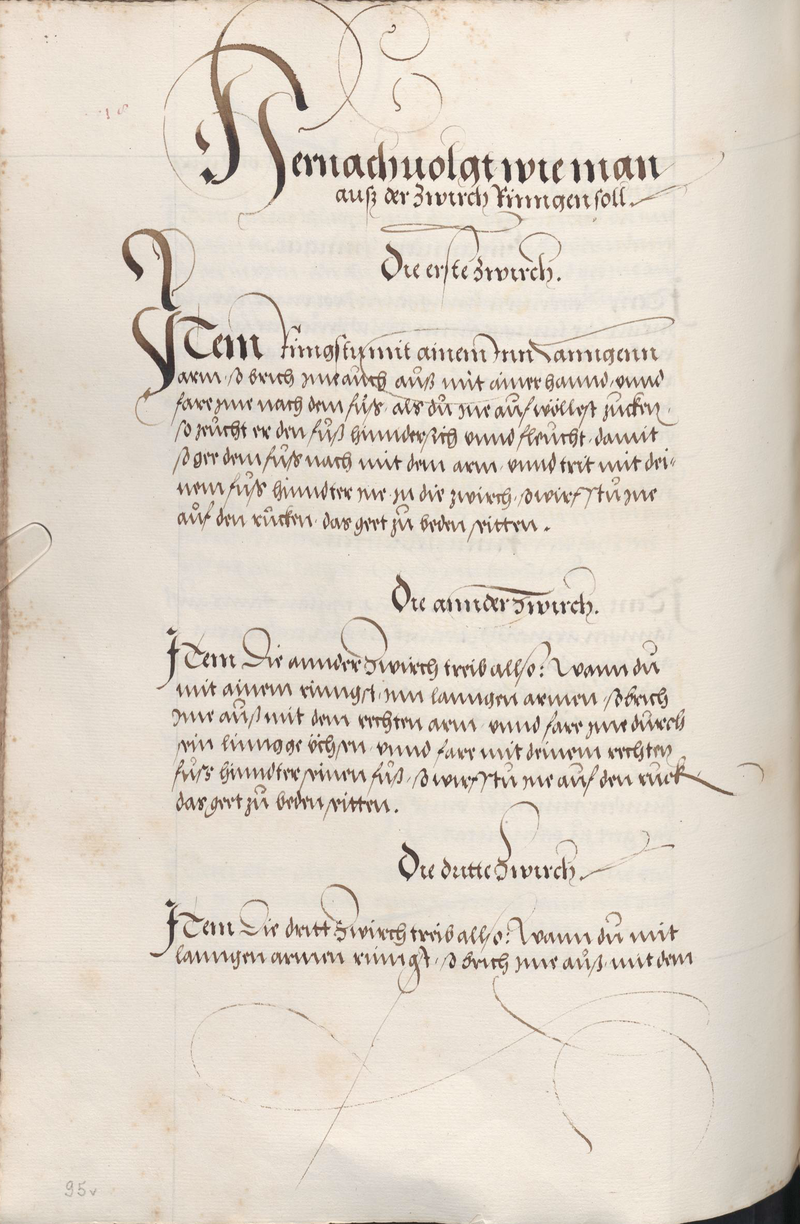 Hernachuolgt wie man
auß der Zwirch Ringen soll.
Die erste Zwirch.
YTem Ringstu mit ainem Inn Lanngenn
arm, so brich ime auch auß mit ainer hannd, vnnd
fare ime nach dem fůß, als du ine auf wöllest zucken,
so zeucht er den fůß hinndersich vnnd fleucht, damit
so gee dem fůß nach mit dem arm, vnnd trit mit dei=
nem fůß hinndter ine in die zwirch, so wirfstu ine
auf den rucken, das geet zu beden seitten.
Die annder Zwirch.
ITem Die annder Zwirch treib allso: Wann du
mit ainem ringst, inn lanngen armen, so brich
ime auß mit dem rechten arm, vnnd fare ime durch
sein lingge üchsen, vnnd fare mit deinem rechten
fuß hinndter seinen fůß, so wirfstu ine auf den ruck
das geet zu beden seitten.
Die dritte Zwirch.
ITem Die dritt Zwirch treib allso: Wann du mit
lanngen armen ringst, so brich ime auß, mit dem
95v